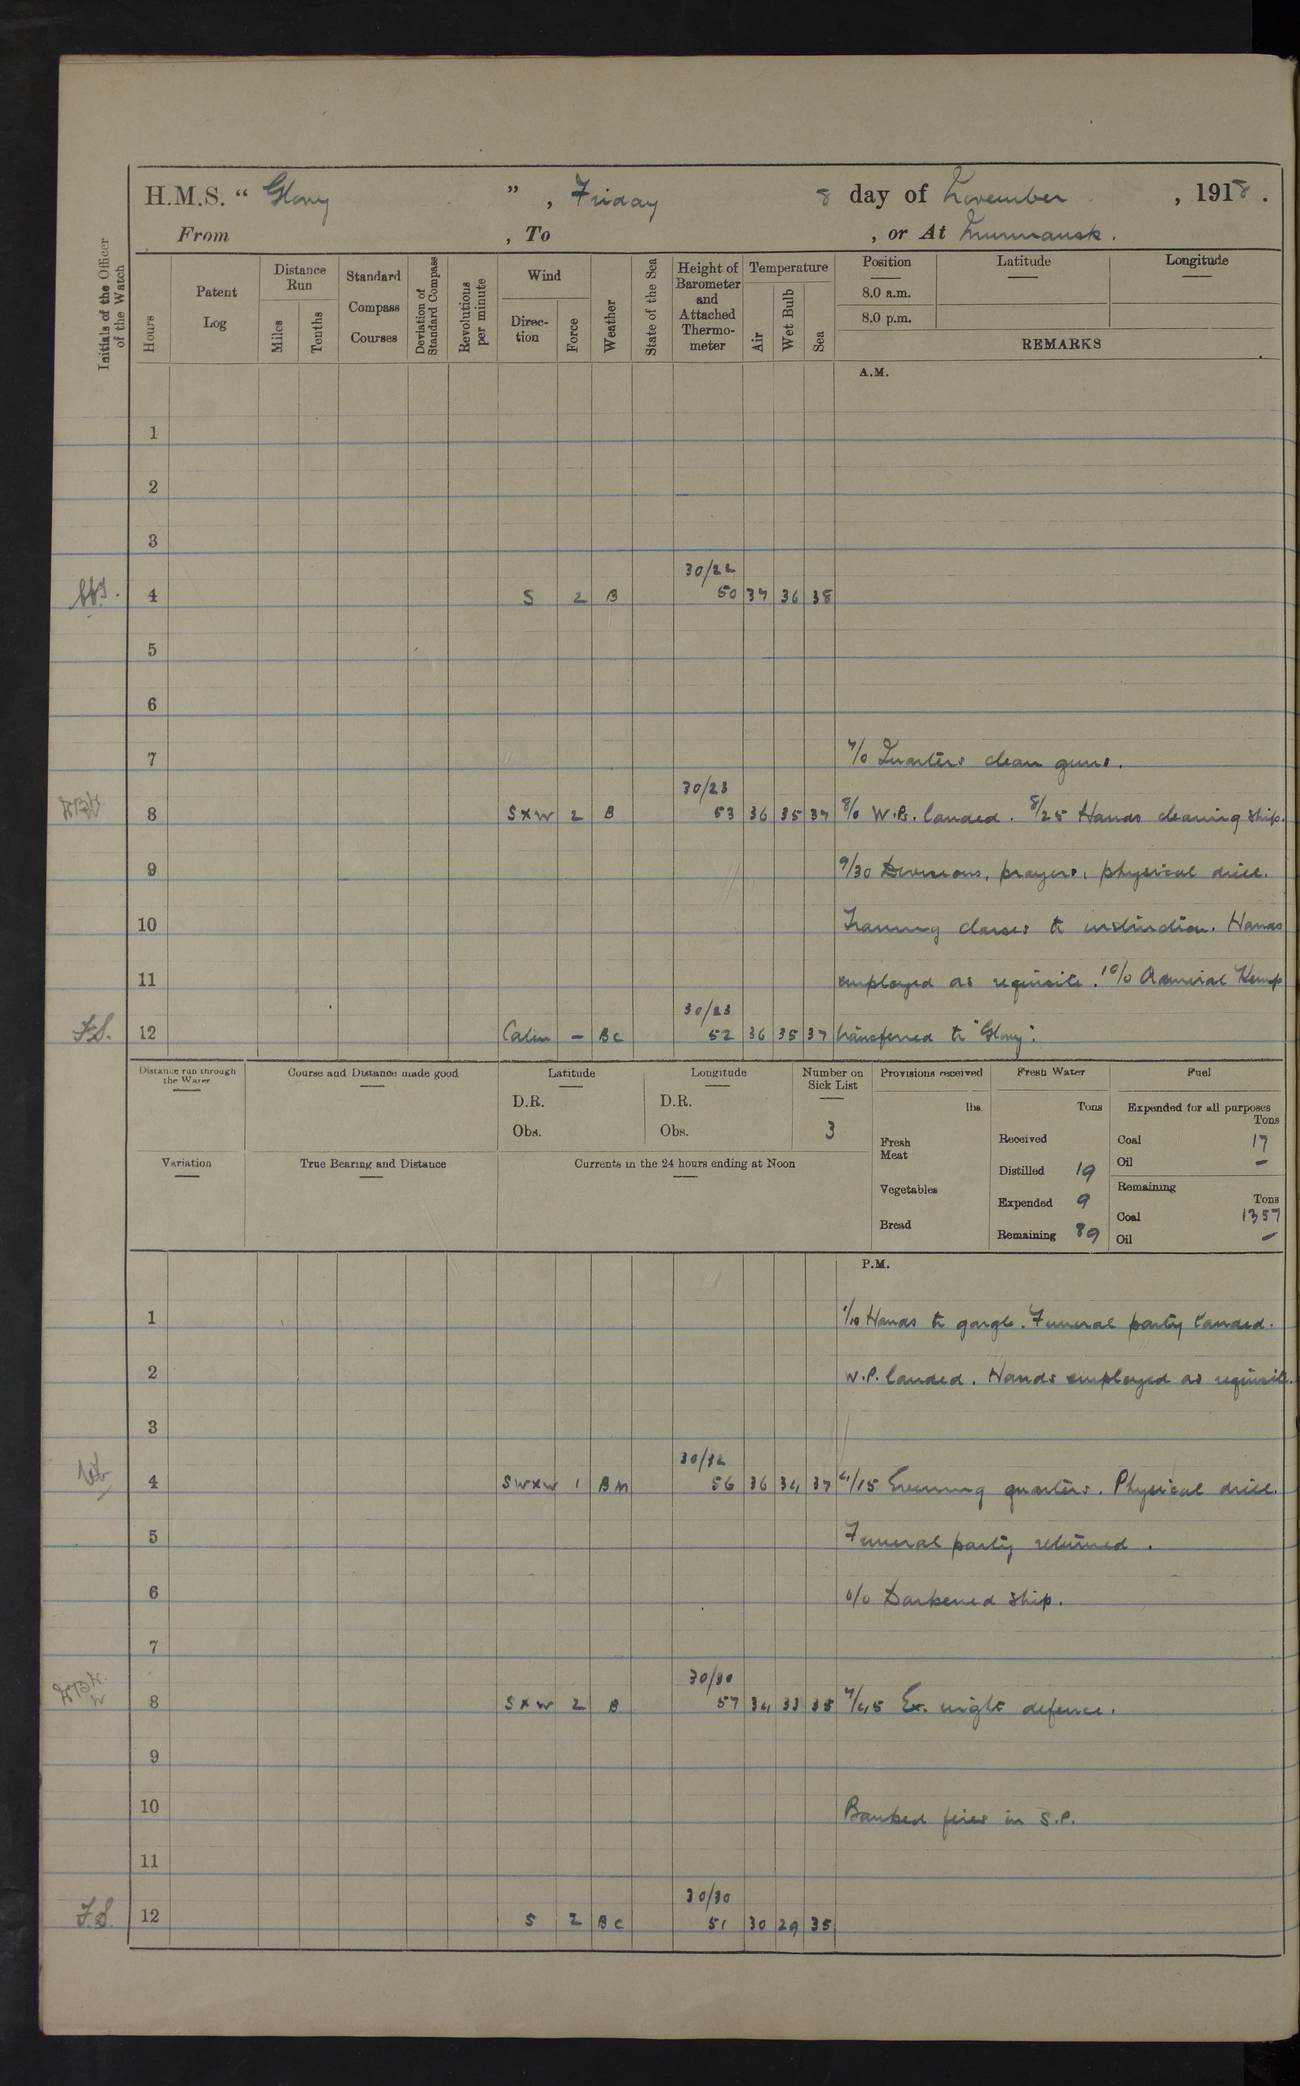 H.M.S. “ Glory ” , Friday 8 day of November , 1918 .
From , To , or At Murmansk .
Initials of the Officer of the Watch
Hours
Patent Log
Distance Run
Miles
Tenths
Standard Compass Courses
Deviation of Standard Compass
Revolutions per minute
Wind
Direc-tion
Force
Weather
State of the Sea
Height of Barometer and Attached Thermo-meter
Temperature
Air
Wet Bulb
Sea
Position
8.0 a.m.
8.0 p.m.
Latitude
Longitude
REMARKS
A.M.
1
2
3
30/22
4 S 2 B 50 37 36 38
5
6
7 7/0 Quarters clean guns.
30/23
8 S x W 2 B 53 36 35 37 8/0 W.Ps. landed. 8/25 Hands cleaning ship.
9 9/30 Divisions, prayers, physical drill.
10 Training classes to instruction. Hands
11 employed as requisite. 10/0 Admiral Kemp
30/23
F.S. 12 Calm – BC 52 36 35 37 transferred to "Glory".
Distance run through the Water
Course and Distance made good
Latitude
D.R.
Obs.
Longitude
D.R.
Obs.
Number on Sick List
3
Variation
True Bearing and Distance
Currents in the 24 hours ending at Noon
Provisions received
lbs.
Fresh Meat
Vegetables
Bread
Fresh Water
Tons
Received
Distilled 19
Expended 9
Remaining 89
Fuel
Expended for all purposes
Tons
Coal 17
Oil –
Remaining
Tons
Coal 1357
Oil –
P.M.
1 1/10 Hands to gargle. Funeral party landed.
2 W.P. landed. Hands employed as requisite.
3
30/32
4 SW x W 1 BM 56 36 34 37 4/15 Evening quarters. Physical drill.
5 Funeral party returned .
6 0/0 Darkened ship.
7
30/30
8 S x W 2 B 57 34 33 35 7/45 Ex. night defence.
9
10 Banked fires in S.P.
11
30/30
F.S. 12 S 2 BC 51 30 29 35